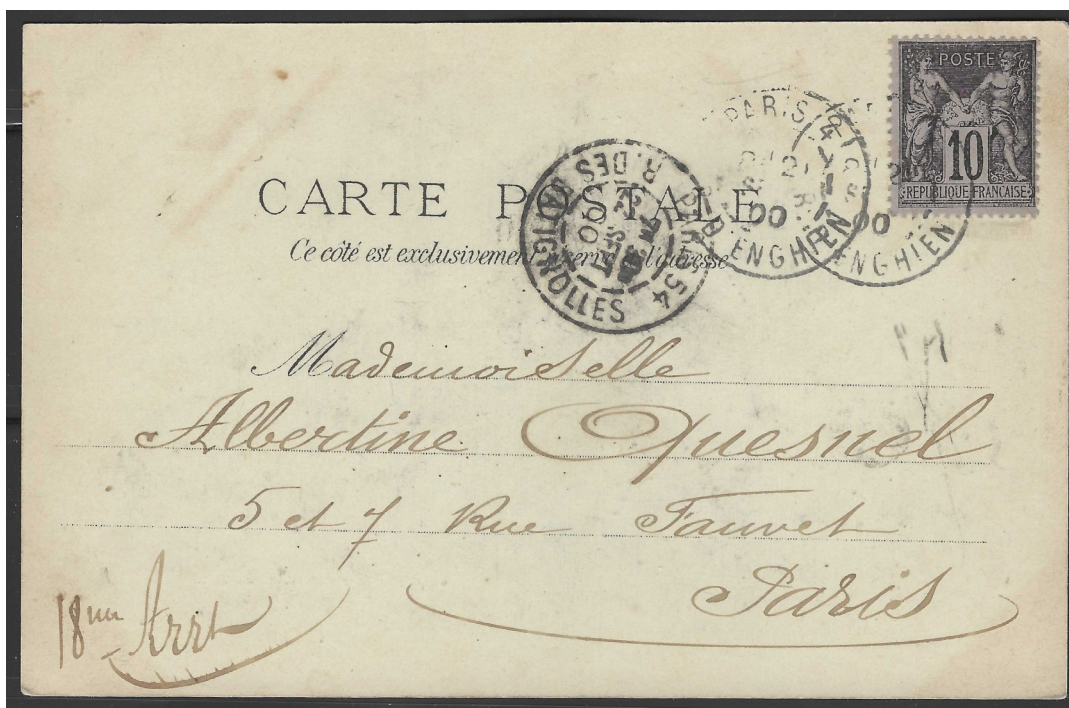 POSTE
10
REPUBLIQUE FRANCAISE
PARIS
00
ENGHIEN
00
ENGHIEN
PARIS 54
R. DES BATIGNOLLES
00
CARTE POSTALE
Ce côté est exclusivement réservé à l'adresse
Mademoiselle
Albertine Quesnel
5 et 7 Rue Fauvet
Paris
18me Arrt